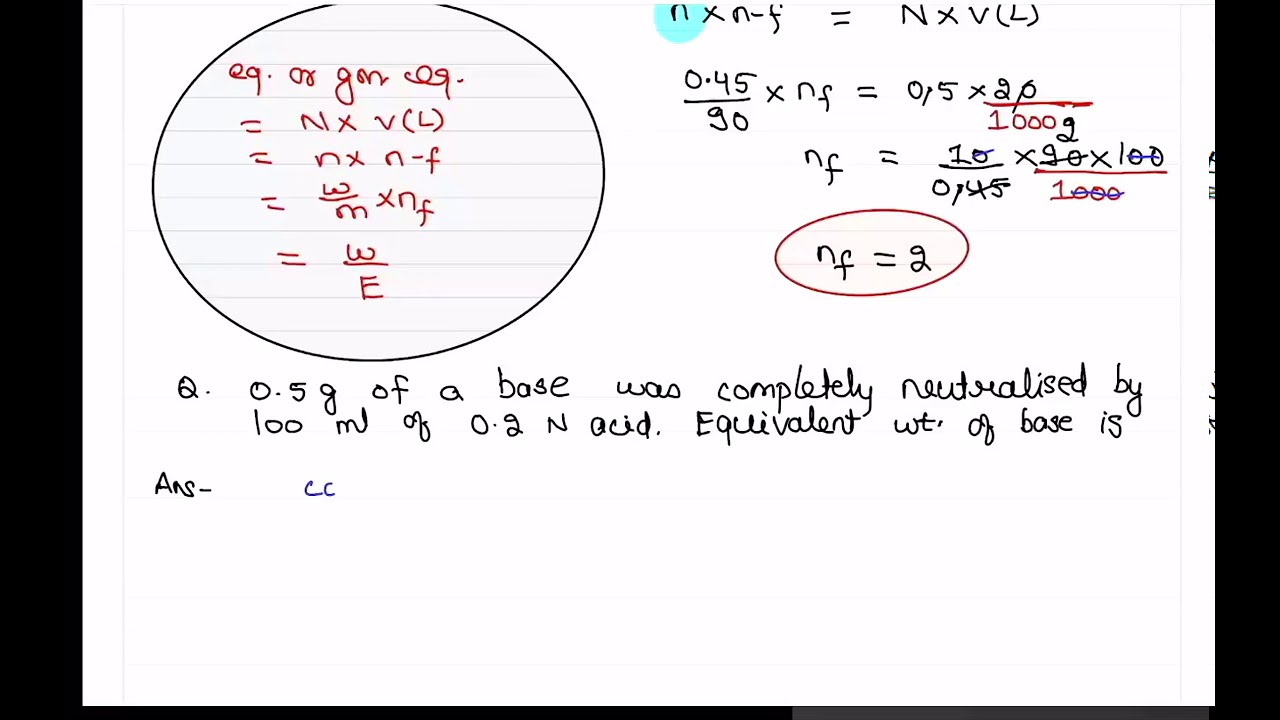 n × n-f = N × V(L)
eq. or gm eq.
= N × V(L)
= n × n-f
= w/m × nf
= w/E
0.45/90 × nf = 0.5 × 20/1000
nf = 10/0.45 × 90 × 100/1000
2
nf = 2
Q. 0.5 g of a base was completely neutralised by
100 ml of 0.2 N acid. Equivalent wt. of base is
Ans-